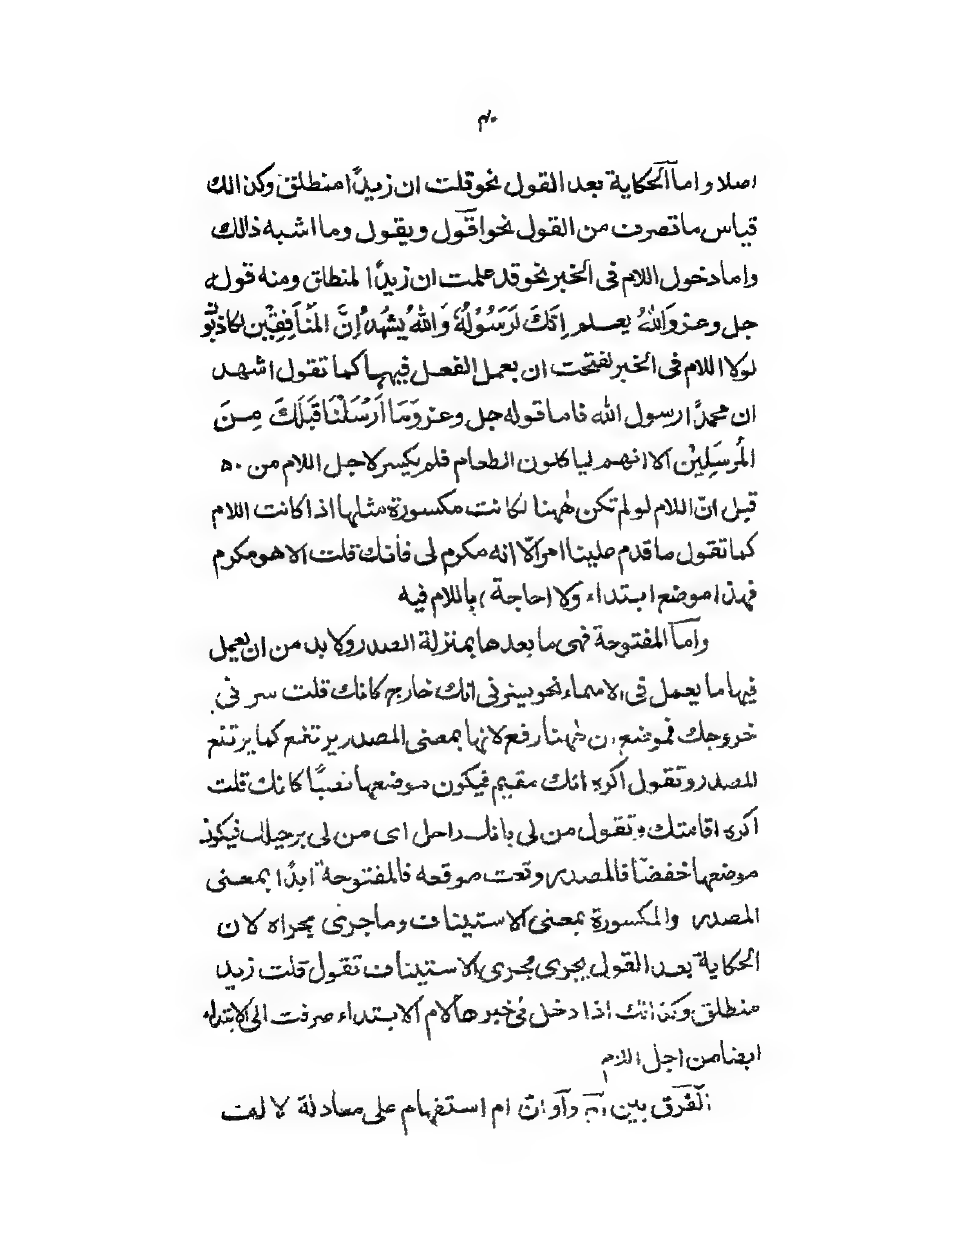 ٣٠
اصلا واما الحكاية بعد القول نحو قلت ان زيدًا منطلق وكذالك
قياس ما تصرف من القول نحو اقول ويقول وما اشبه ذالك
واما دخول اللام فى الخبر نحو قد علمت ان زيدًا لمنطلق ومنه قوله
جل وعز وَاللهُ يعلم إِنَّكَ لَرَسُوْلُهُ وَاللهُ يَشْهَدُ إِنَّ المُنَافِقِيْن لكاذبون
لولا اللام فى الخبر لفتحت ان بعمل الفعل فيها كما تقول اشهد
ان محمدًا رسول الله فاما قوله جل وعز وَمَا اَرْسَلْنَا قَبْلَكَ مِنَ
الْمُرسَلِيْن الا انهم لياكلون الطعام فلم يكسر لاجل اللام من ٥٠
قبل انّ اللام لو لم تكن ههنا لكانت مكسورة مثلها اذا كانت اللام
كما تقول ما قدم علينا امرٌ الّا انه مكرم لى فأنك قلت الا هو مكرم
فهذا موضع ابتداء ولا حاجة باللام فيه
واما المفتوحة فهى ما بعدها بمنزلة المصدر ولا بد من ان يعمل
فيها ما يعمل فى الاسماء نحو يسرنى انك خارج كانك قلت سرنى
خروجك فموضع ان ههنا رفع لانها بمعنى المصدر يرتفع كما يرتفع
المصدر وتقول اكره انك مقيم فيكون موضعها نصبًا كانك قلت
اكره اقامتك وتقول من لى بانك راحل اى من لى برحيلك فيكون
موضعها خفضًا فالمصدر وقعت موقعه فالمفتوحة ابدًا بمعنى
المصدر والمكسورة بمعنى الاستيناف وما جرى مجراه لان
الحكاية بعد القول يجرى مجرى الاستيناف تقول قلت زيد
منطلق وكذالك اذا دخل فى خبرها لام الابتداء صرفت الى الابتداء
ايضا من اجل اللازم
الفرق بين ام واو انّ ام استفهام على معادلة لا لف